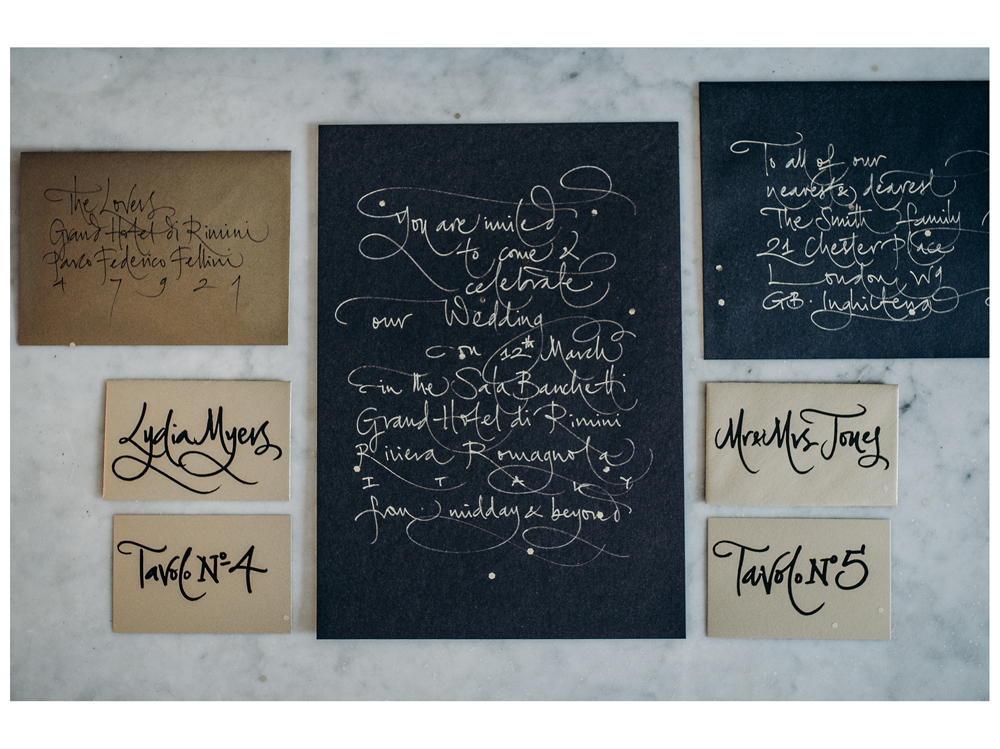 The Lovers
Grand Hotel di Rimini
Parco Federico Fellini
4 7 9 2 1
Lydia Myers
Tavolo No 4
You are invited
to come &
celebrate
our Wedding
on 12th March
in the Sala Banchetti
Grand Hotel di Rimini
Riviera Romagnola
I T A L Y
from midday & beyond
To all of our
nearest & dearest
The Smith family
21 Chester Place
London, W9
GB · Inghilterra
Mr & Mrs Jones
Tavolo No 5